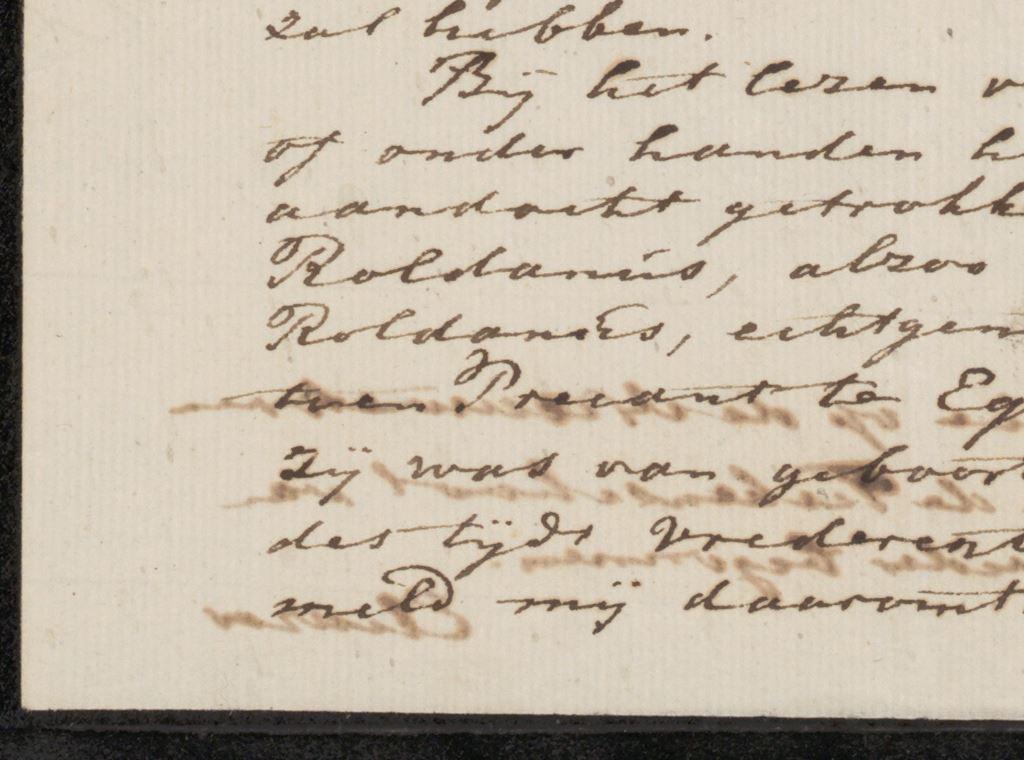 zal hebben.
Bij het lezen v
of onder handen h
aandacht getrokk
Roldanus, alzoo
Roldanus, echtgen
toen Predikant te Eg
Zij was van geboort
des tijds Vrederent
meld mij daaromt